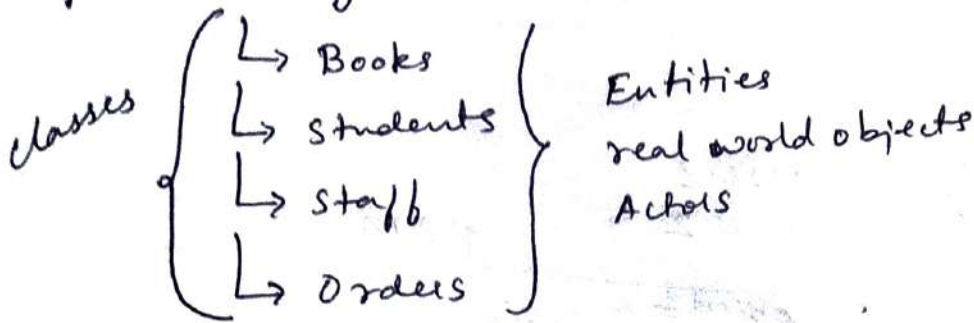 classes
Books
Students
Staff
Orders
Entities
real world objects
Actors